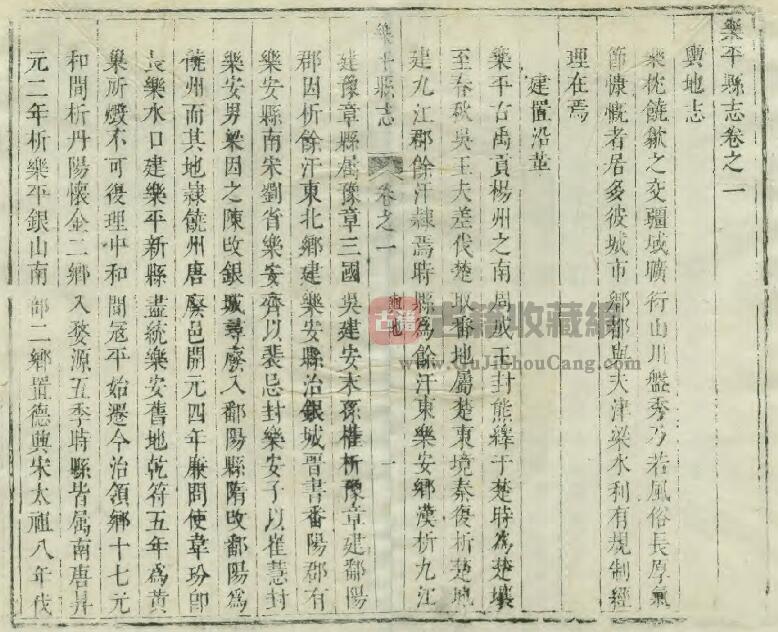 樂平縣志卷之一
輿地志
樂枕饒歙之交疆域曠衍山川盤秀乃若風俗長厚氣
節慷慨者居多彼城市鄉都與夫津梁水利有規制經
理在焉
建置沿革
樂平古禹貢楊州之南周成王封熊繹于楚時為楚壤
至春秋吳王夫差伐楚取番地屬楚東境秦復析楚地
建九江郡餘汗隷焉時縣爲餘汗東樂安鄉漢析九江
樂平縣志 卷之一 輿地 一
建豫章縣屬豫章三國吳建安末孫權析豫章建鄱陽
郡因析餘汗東北鄉建樂安縣治銀城晉書番陽郡有
樂安縣南宋劉省樂安齊以裴忌封樂安子以崔慧封
樂安男梁因之陳改銀城尋廢入鄱陽縣隋改鄱陽爲
饒州而其地隷饒州唐廢邑開元四年廉問使韋玢卽
長樂水口建樂平新縣盡統樂安舊地乾符五年爲黃
巢所燬不可復理中和間冦平始遷今治領鄉十七元
和間析丹陽懷金二鄉入婺源五季時縣皆属南唐昇
元二年析樂平銀山南部二鄉置德興宋太祖八年伐
古籍
古籍收藏網
www.GuJiShouCang.com